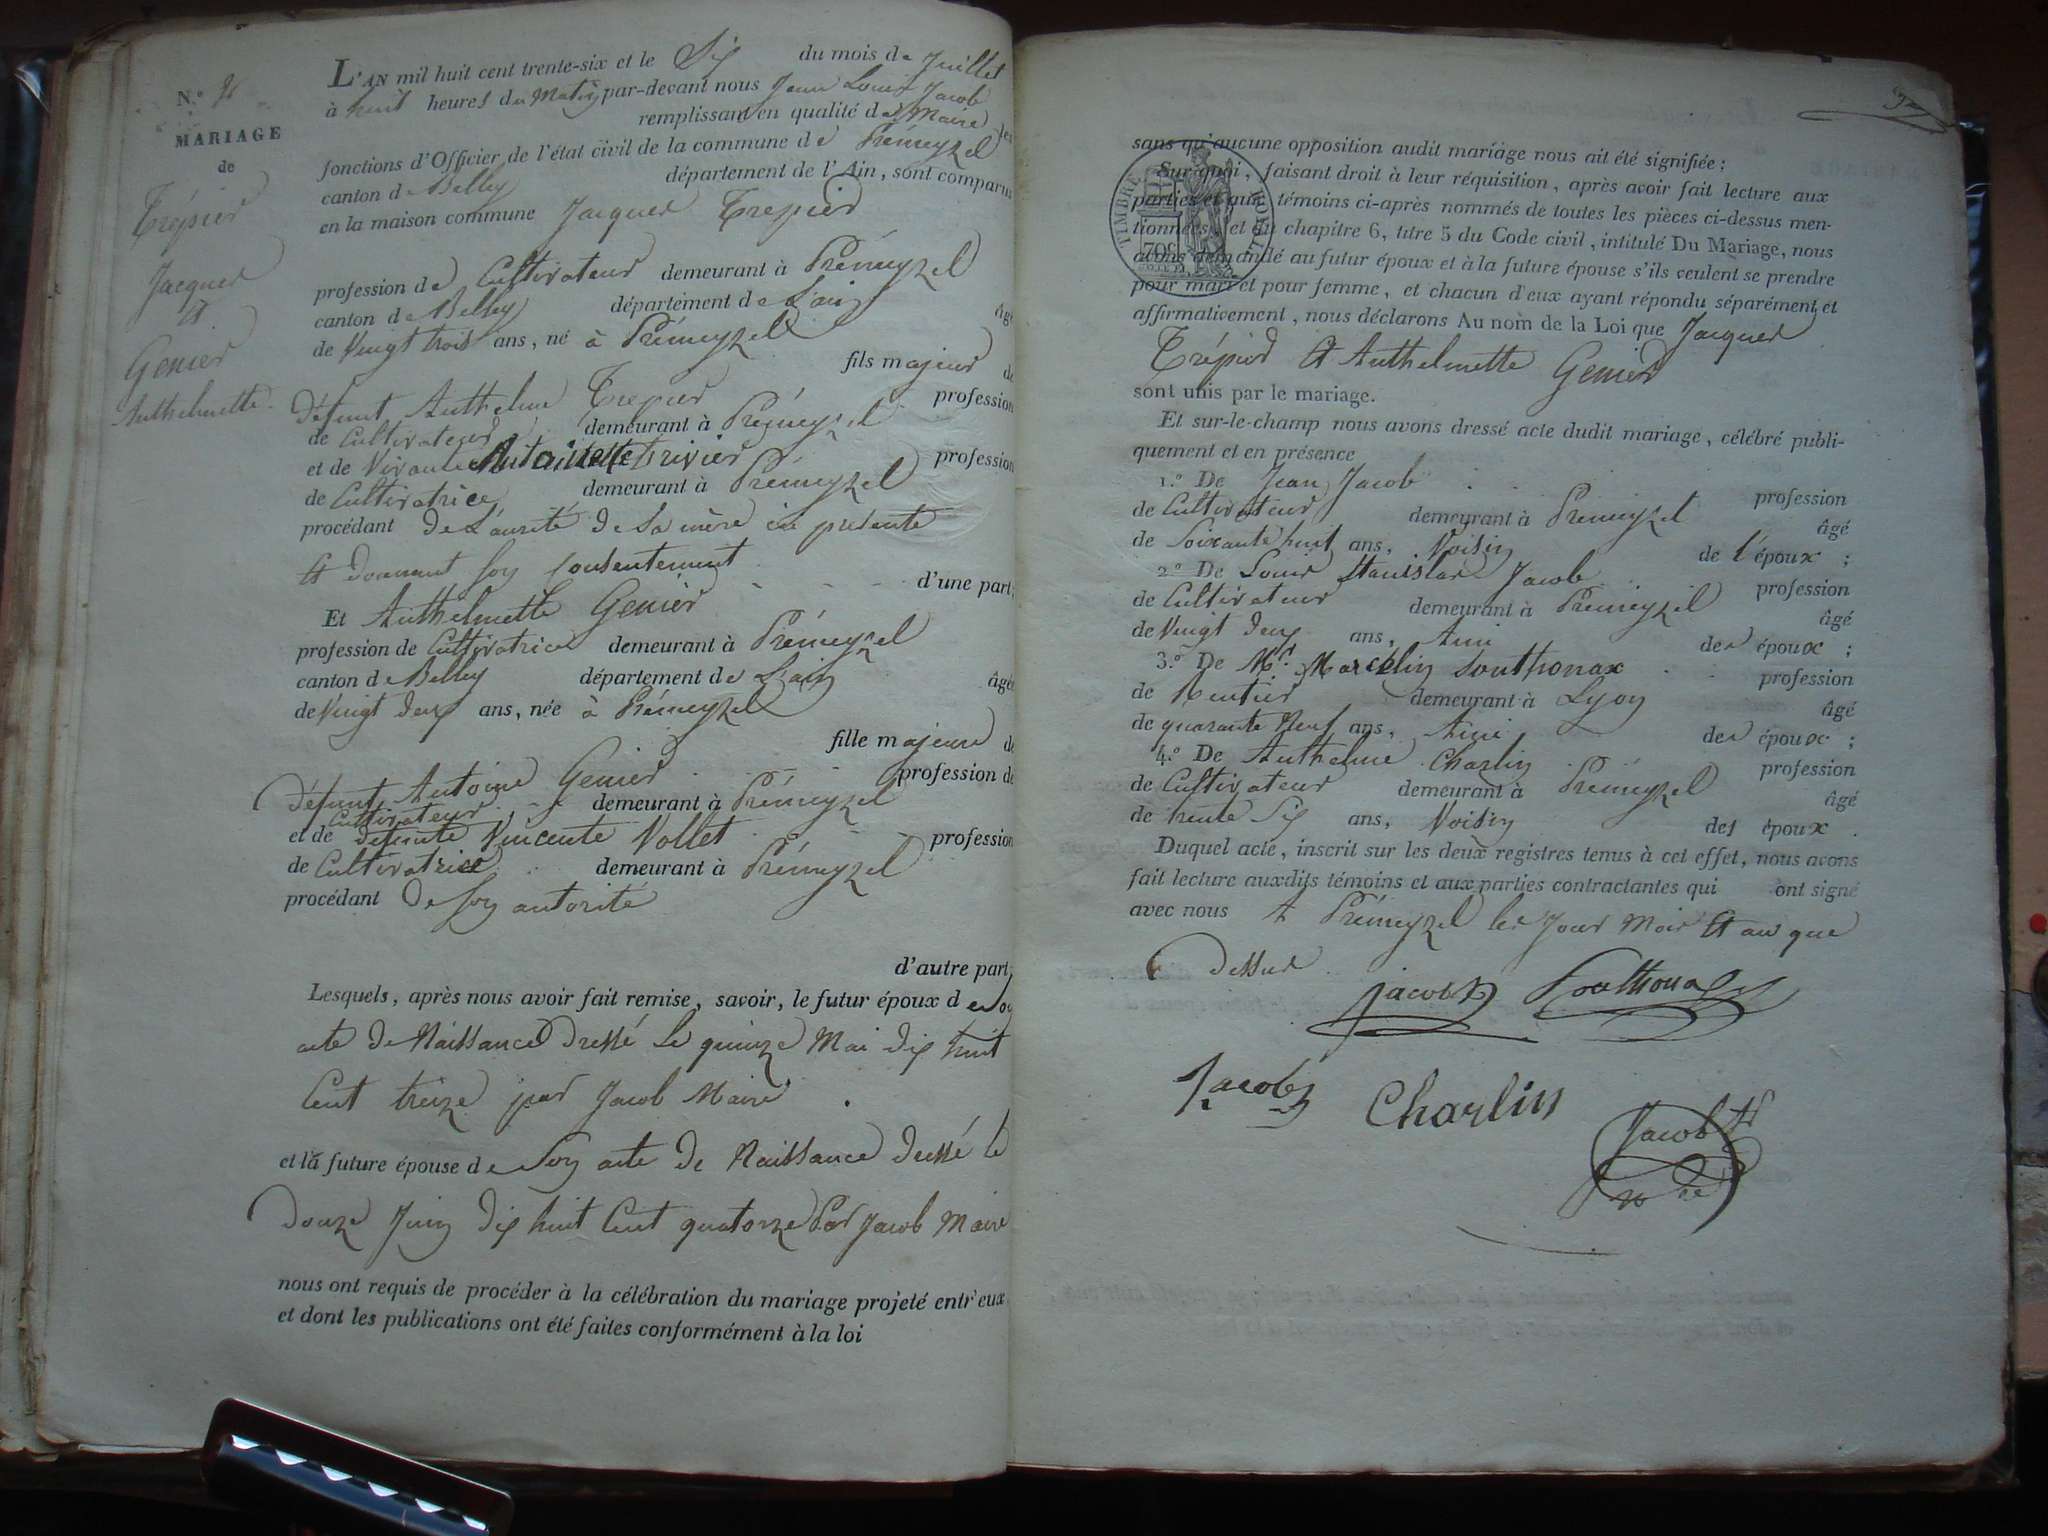 N.°
MARIAGE
de
Trépier
Jacques
et
Genier
Anthelmette
L'AN mil huit cent trente-six et le Six du mois de Juillet
à huit heures du Matin par-devant nous Jean Louis Jacob
remplissant en qualité de Maire les
fonctions d'Officier de l'état civil de la commune de Prémeyzel
canton de Belley département de l'Ain, sont comparus
en la maison commune Jacques Trepier
profession de Cultivateur demeurant à Prémeyzel
canton de Belley département de L'ain âgé
de Vingt trois ans, né à Prémeyzel
fils majeur de
défunt Anthelme Trepier profession
de Cultivateur demeurant à Prémeyzel
et de Vivante Antoinette trivier profession
de Cultivatrice demeurant à Prémeyzel
procédant de L'autorité de Sa mère ici présente
et donnant Son Consentement
d'une part;
Et Anthelmette Genier
profession de Cultivatrice demeurant à Prémeyzel
canton de Belley département de L'ain âgée
de Vingt deux ans, née à Prémeyzel
fille majeure de
défunt Antoine Genier profession de
Cultivateur demeurant à Prémeyzel
et de défunte Vincente Vollet profession
de Cultivatrice demeurant à Prémeyzel
procédant de Son autorité
d'autre part;
Lesquels, après nous avoir fait remise, savoir, le futur époux de son
acte de Naissance dressé le quinze Mai dix huit
Cent treize par Jacob Maire
et la future épouse de Son acte de Naissance dressé le
douze Juin dix huit Cent quatorze Par Jacob Maire
nous ont requis de procéder à la célébration du mariage projeté entr'eux
et dont les publications ont été faites conformément à la loi
sans qu'aucune opposition audit mariage nous ait été signifiée;
Sur quoi, faisant droit à leur réquisition, après avoir fait lecture aux
parties et aux témoins ci-après nommés de toutes les pièces ci-dessus men-
tionnées, et du chapitre 6, titre 5 du Code civil, intitulé Du Mariage, nous
avons demandé au futur époux et à la future épouse s'ils veulent se prendre
pour mari et pour femme, et chacun d'eux ayant répondu séparément et
affirmativement, nous déclarons Au nom de la Loi que Jacques
Trépier et Anthelmette Genier
sont unis par le mariage.
TIMBRE ROYAL
70c
Et sur-le-champ nous avons dressé acte dudit mariage, célébré publi-
quement et en présence
1.° De Jean Jacob profession
de Cultivateur demeurant à Prémeyzel âgé
de Soixante huit ans, Voisin de l'époux;
2.° De Louis Stanislas Jacob profession
de Cultivateur demeurant à Prémeyzel âgé
de Vingt deux ans, Ami des époux;
3.° De Mr. Marcelin Southonax profession
de Rentier demeurant à Lyon âgé
de quarante Neuf ans, Ami des époux;
4.° De Anthelme Charlin profession
de Cultivateur demeurant à Prémeyzel âgé
de trente Six ans, Voisin des époux.
Duquel acte, inscrit sur les deux registres tenus à cet effet, nous avons
fait lecture auxdits témoins et aux parties contractantes qui ont signé
avec nous à Prémeyzel les Jour Mois et an que
dessus
Jacob Southonax
Jacob Charlin
Jacob